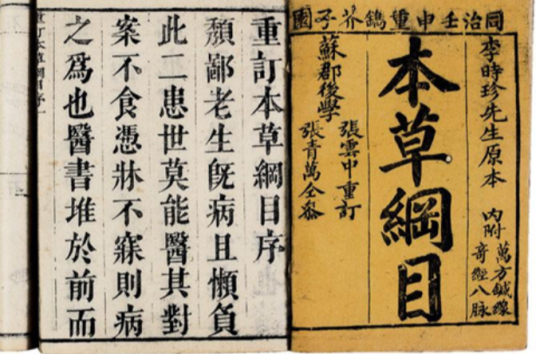 同治壬申重鐫芥子園
李時珍先生原本
內附
萬方鍼線
奇經八脉
本草綱目
張雲中重訂
張青萬仝參
蘇郡後學
重訂本草綱目序
頹鄙老生旣病且懶負
此二患世莫能醫其對
案不食憑牀不寐則病
之爲也醫書堆於前而
重訂本草綱目序一